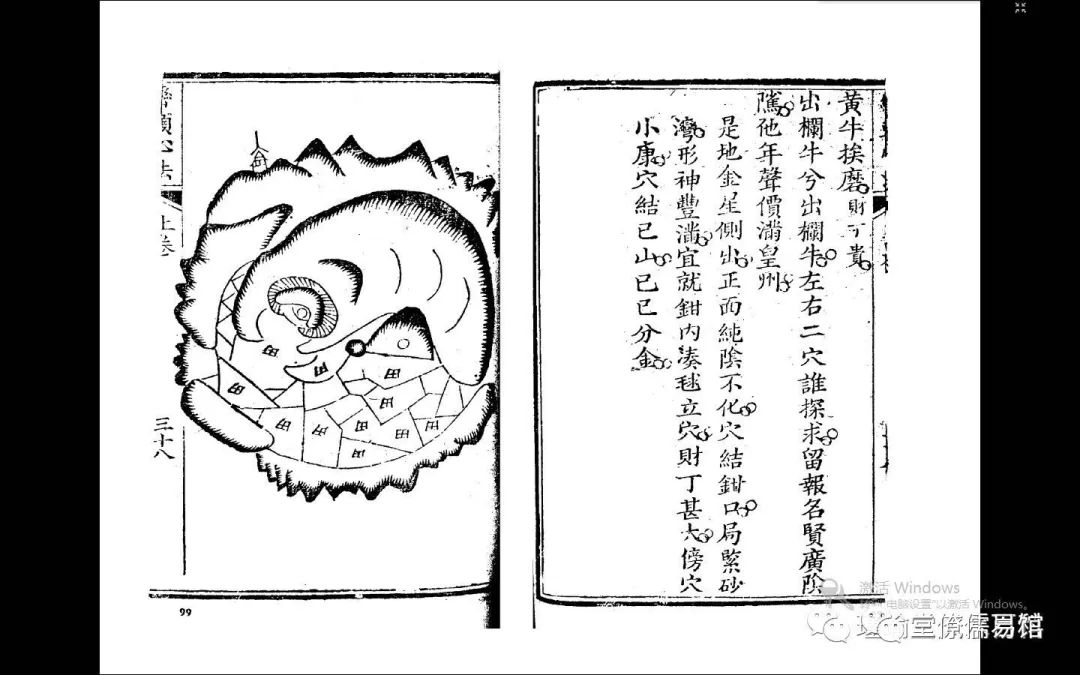 黄牛挨磨財丁貴
出欄牛兮出欄牛左右二穴誰探求留報名賢廣陰
隲他年聲價滿皇州
是地金星側出正面純陰不化穴結鉗口局緊砂
灣形神豐滿宜就鉗内湊毬立穴財丁甚大傍穴
小康穴結巳山己巳分金
心法
上卷
三十八
金
田
田
田
田
田
田
田
田
田
田
99
激活 Windows
转到"电脑设置"以激活 Windows。
堂僚儒易馆